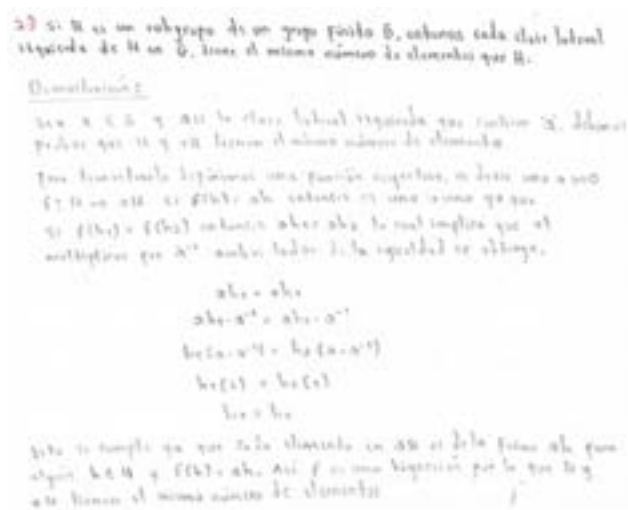 2) Si H es un subgrupo de un grupo finito G, entonces cada clase lateral
izquierda de H en G, tiene el mismo número de elementos que H.
Demostración:
Sea a ∈ G y aH la clase lateral izquierda que contiene a, debemos
probar que H y aH tienen el mismo número de elementos
Para demostrarlo definimos una función biyectiva, es decir uno a uno
f: H → aH si f(h) = ah entonces es uno a uno ya que
si f(h₁) = f(h₂) entonces ah₁ = ah₂ lo cual implica que al
multiplicar por a⁻¹ ambos lados de la igualdad se obtiene,
ah₁ = ah₂
ah₁·a⁻¹ = ah₂·a⁻¹
h₁(a·a⁻¹) = h₂(a·a⁻¹)
h₁(e) = h₂(e)
h₁ = h₂
Esto se cumple ya que todo elemento en aH es de la forma ah para
algún h ∈ H y f(h) = ah. Así f es una biyección por lo que H y
aH tienen el mismo número de elementos